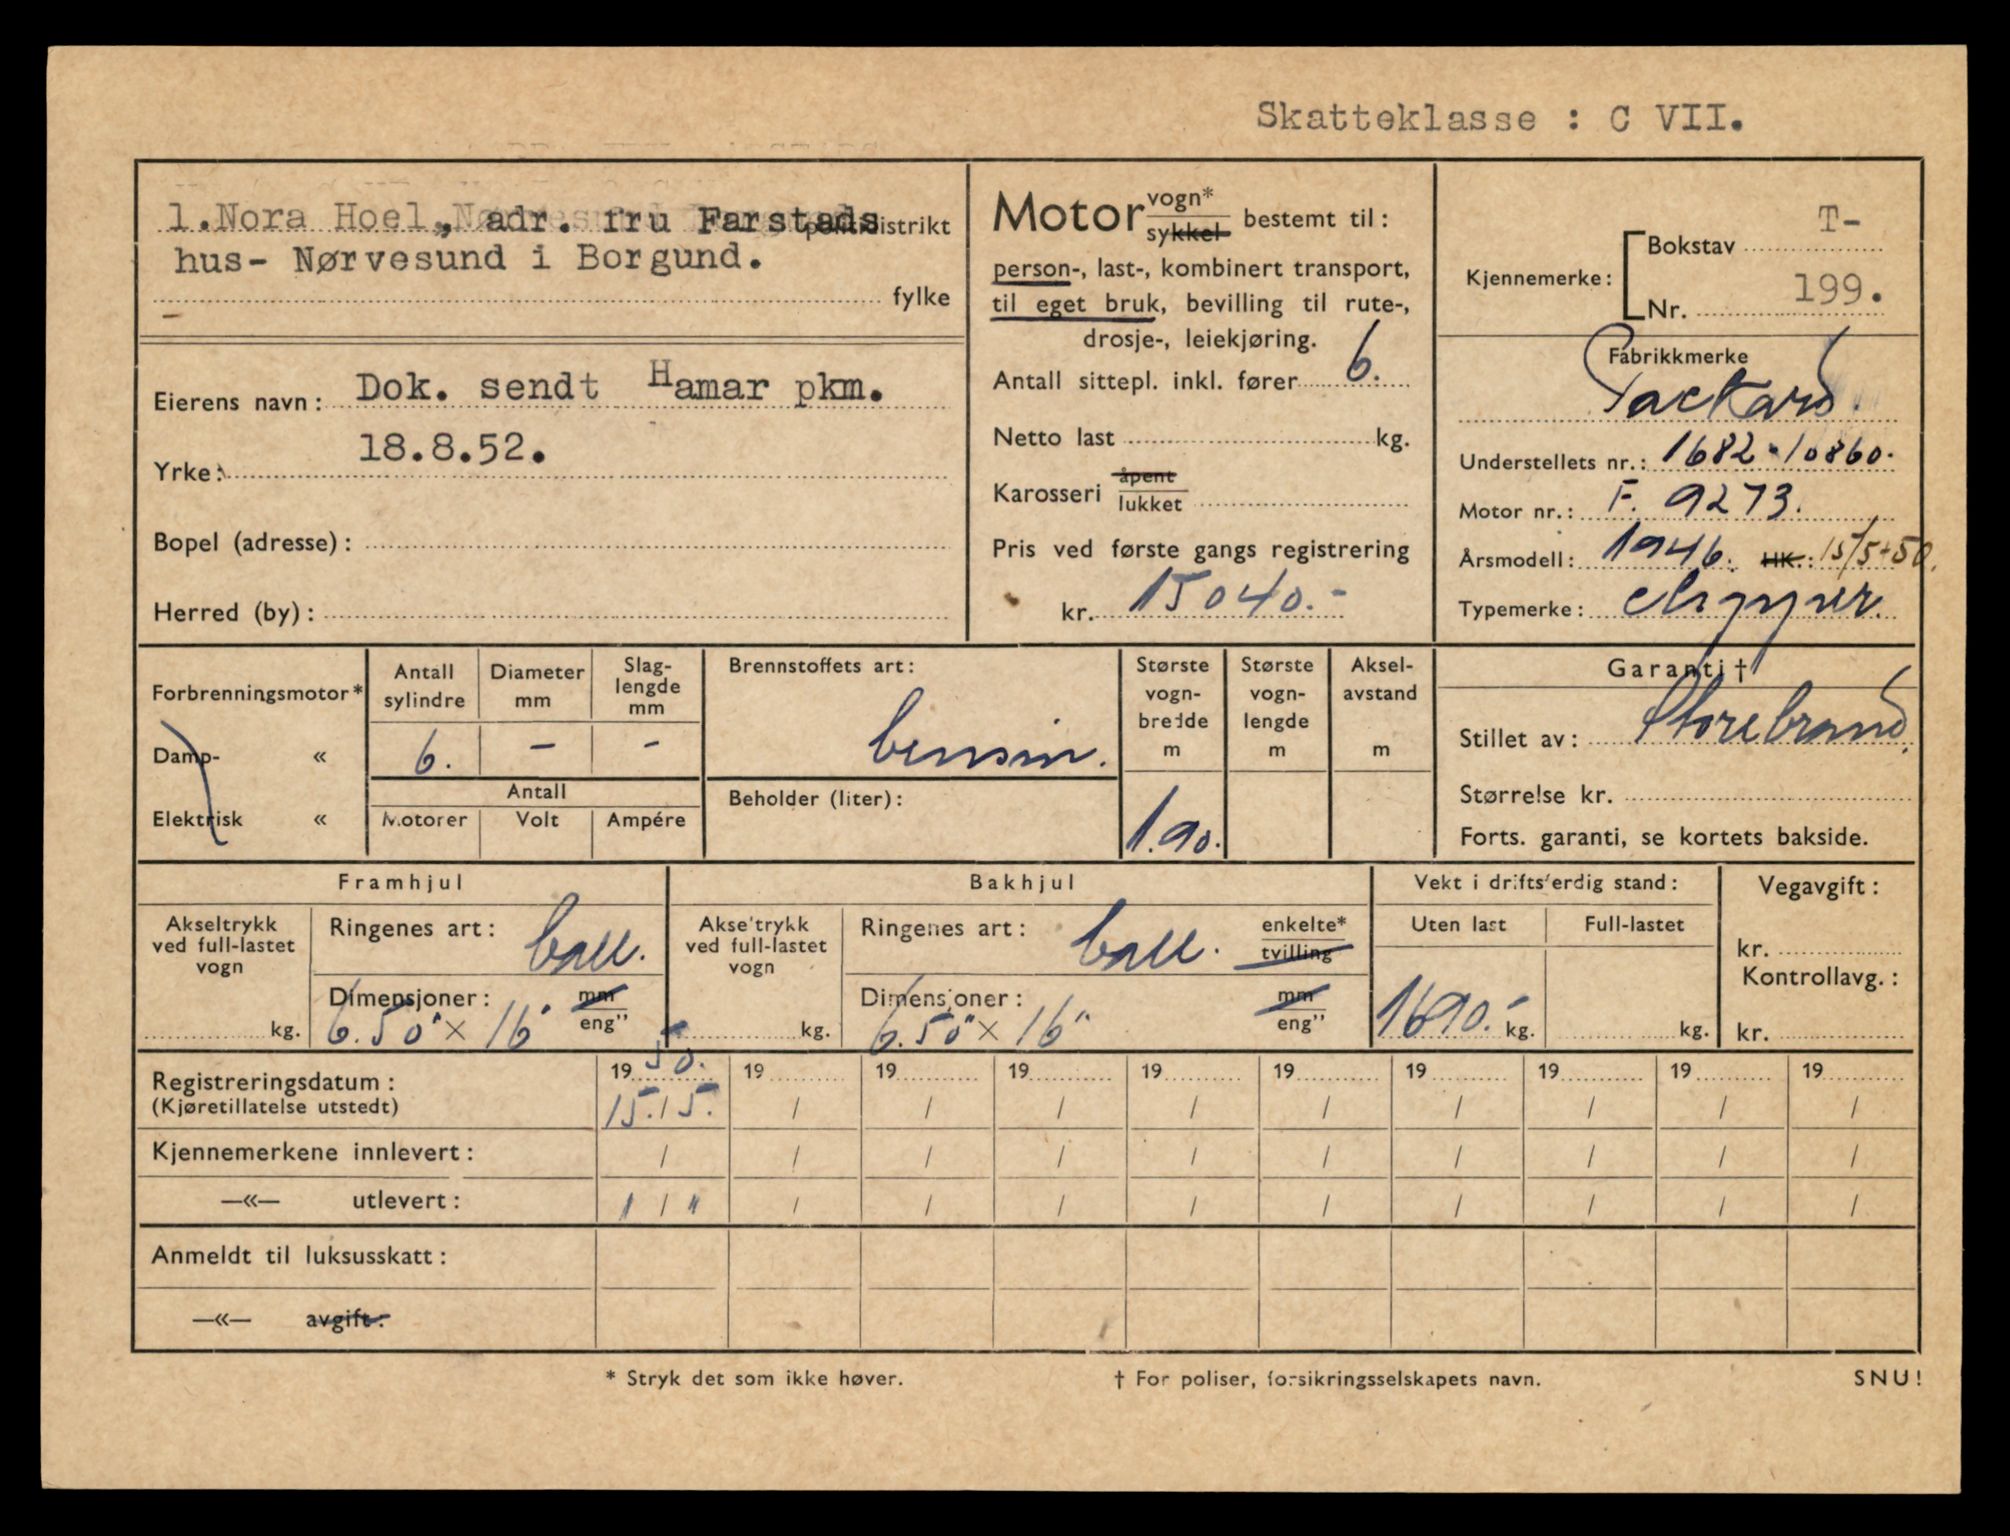 Skatteklasse : C VII.
1.Nora Hoel, adr. fru Farstads politidistrikt
hus- Nørvesund i Borgund.
fylke
Eierens navn: Dok. sendt Hamar pkm.
18.8.52.
Yrke:
Bopel (adresse):
Herred (by):
Motor vogn* sykkel bestemt til:
person-, last-, kombinert transport,
til eget bruk, bevilling til rute-,
drosje-, leiekjøring.
Antall sittepl. inkl. fører 6.
Netto last kg.
Karosseri åpent lukket
Pris ved første gangs registrering
kr. 15040.-
Kjennemerke: Bokstav T-
Nr. 199.
Fabrikkmerke
Packard.
Understellets nr.: 1682-10860.
Motor nr.: F. 9273.
Årsmodell: 1946. HK.: 15/5-50.
Typemerke: Clipper.
Forbrenningsmotor*
Damp- «
Elektrisk «
Antall sylindre
6.
Diameter mm
-
Slag-lengde mm
-
Antall
Motorer Volt Ampére
Brennstoffets art:
bensin.
Beholder (liter):
Største vogn-bredde m
1.90.
Største vogn-lengde m
Aksel-avstand m
Garanti †
Stillet av: Storebrand.
Størrelse kr.
Forts. garanti, se kortets bakside.
Framhjul
Akseltrykk
ved full-lastet
vogn
kg.
Ringenes art: ball.
Dimensjoner: mm eng''
6.50" x 16"
Bakhjul
Akseltrykk
ved full-lastet
vogn
kg.
Ringenes art: ball. enkelte* tvilling
Dimensjoner: mm eng''
6.50" x 16"
Vekt i driftsferdig stand:
Uten last Full-lastet
1690.- kg. kg.
Vegavgift:
kr.
Kontrollavg.:
kr.
Registreringsdatum: 1950. 19 19 19 19 19 19 19 19 19
(Kjøretillatelse utstedt) 15./5. / / / / / / / / /
Kjennemerkene innlevert: / / / / / / / / / /
—«— utlevert: " / " / / / / / / / / /
Anmeldt til luksusskatt:
—«— avgift:
* Stryk det som ikke høver. † For poliser, forsikringsselskapets navn. SNU!